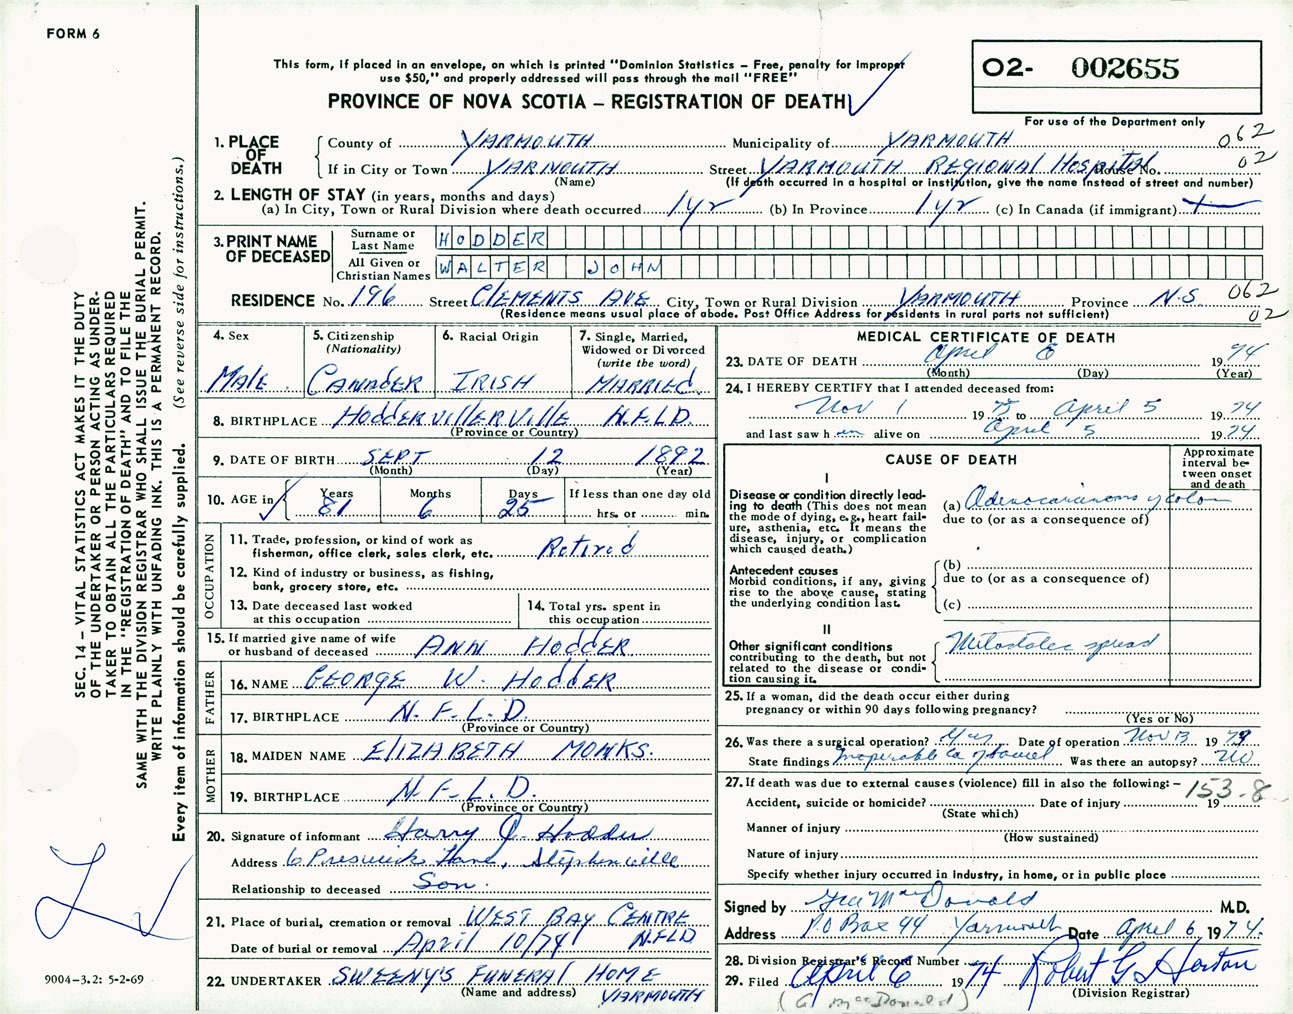 FORM 6
This form, if placed in an envelope, on which is printed "Dominion Statistics – Free, penalty for improper
use $50," and properly addressed will pass through the mail "FREE"
PROVINCE OF NOVA SCOTIA – REGISTRATION OF DEATH
O2- 002655
For use of the Department only
1. PLACE OF DEATH
County of YARMOUTH Municipality of YARMOUTH 062
If in City or Town YARMOUTH Street YARMOUTH REGIONAL HOSPITAL House No. 02
(Name) (If death occurred in a hospital or institution, give the name instead of street and number)
2. LENGTH OF STAY (in years, months and days)
(a) In City, Town or Rural Division where death occurred 1yr (b) In Province 1yr (c) In Canada (if immigrant)
3. PRINT NAME OF DECEASED
Surname or Last Name HODDER
All Given or Christian Names WALTER JOHN
RESIDENCE No. 196 Street CLEMENTS AVE City, Town or Rural Division YARMOUTH Province N.S 062
(Residence means usual place of abode. Post Office Address for residents in rural parts not sufficient) 02
4. Sex MALE
5. Citizenship (Nationality) CANADER
6. Racial Origin IRISH
7. Single, Married, Widowed or Divorced (write the word) MARRIED
8. BIRTHPLACE HODDERVILLERVILLE NFLD.
(Province or Country)
9. DATE OF BIRTH SEPT 12 1892
(Month) (Day) (Year)
10. AGE in Years 81 Months 6 Days 25 If less than one day old
hrs. or min.
OCCUPATION
11. Trade, profession, or kind of work as
fisherman, office clerk, sales clerk, etc. Retired
12. Kind of industry or business, as fishing,
bank, grocery store, etc.
13. Date deceased last worked
at this occupation
14. Total yrs. spent in
this occupation
15. If married give name of wife
or husband of deceased ANN HODDER
FATHER
16. NAME GEORGE W. HODDER
17. BIRTHPLACE N.F.L.D.
(Province or Country)
MOTHER
18. MAIDEN NAME ELIZABETH MONKS.
19. BIRTHPLACE N.F.L.D.
(Province or Country)
20. Signature of informant Harry J. Hodder
Address 6 Preswick Lane, Stephenville
Relationship to deceased Son.
21. Place of burial, cremation or removal WEST BAY CENTRE
Date of burial or removal April 10/74 NFLD
22. UNDERTAKER SWEENY'S FUNERAL HOME
(Name and address) YARMOUTH
MEDICAL CERTIFICATE OF DEATH
23. DATE OF DEATH April 6 1974
(Month) (Day) (Year)
24. I HEREBY CERTIFY that I attended deceased from:
Nov 1 19 to April 5 1974
and last saw h im alive on April 5 1974
CAUSE OF DEATH
Approximate interval between onset and death
I
Disease or condition directly leading to death (This does not mean the mode of dying, e.g., heart failure, asthenia, etc. It means the disease, injury, or complication which caused death.)
(a) Adenocarcinoma of colon
due to (or as a consequence of)
Antecedent causes
Morbid conditions, if any, giving rise to the above cause, stating the underlying condition last.
(b)
due to (or as a consequence of)
(c)
II
Other significant conditions
contributing to the death, but not related to the disease or condition causing it.
Metastatic spread
25. If a woman, did the death occur either during
pregnancy or within 90 days following pregnancy?
(Yes or No)
26. Was there a surgical operation? Yes Date of operation Nov 13 19
State findings Inoperable Ca of bowel Was there an autopsy? No
27. If death was due to external causes (violence) fill in also the following: –
153.8
Accident, suicide or homicide? Date of injury 19
(State which)
Manner of injury
(How sustained)
Nature of injury
Specify whether injury occurred in industry, in home, or in public place
Signed by MacDonald M.D.
Address P.O Box 44 Yarmouth Date April 6 1974.
28. Division Registrar's Record Number
29. Filed April 6 1974 Robert G Horton
(Division Registrar)
(G MacDonald)
SEC. 14 – VITAL STATISTICS ACT MAKES IT THE DUTY
OF THE UNDERTAKER OR PERSON ACTING AS UNDER-
TAKER TO OBTAIN ALL THE PARTICULARS REQUIRED
IN THE "REGISTRATION OF DEATH" AND TO FILE THE
SAME WITH THE DIVISION REGISTRAR WHO SHALL ISSUE THE BURIAL PERMIT.
WRITE PLAINLY WITH UNFADING INK. THIS IS A PERMANENT RECORD.
Every item of information should be carefully supplied. (See reverse side for instructions.)
9004–3.2: 5-2-69